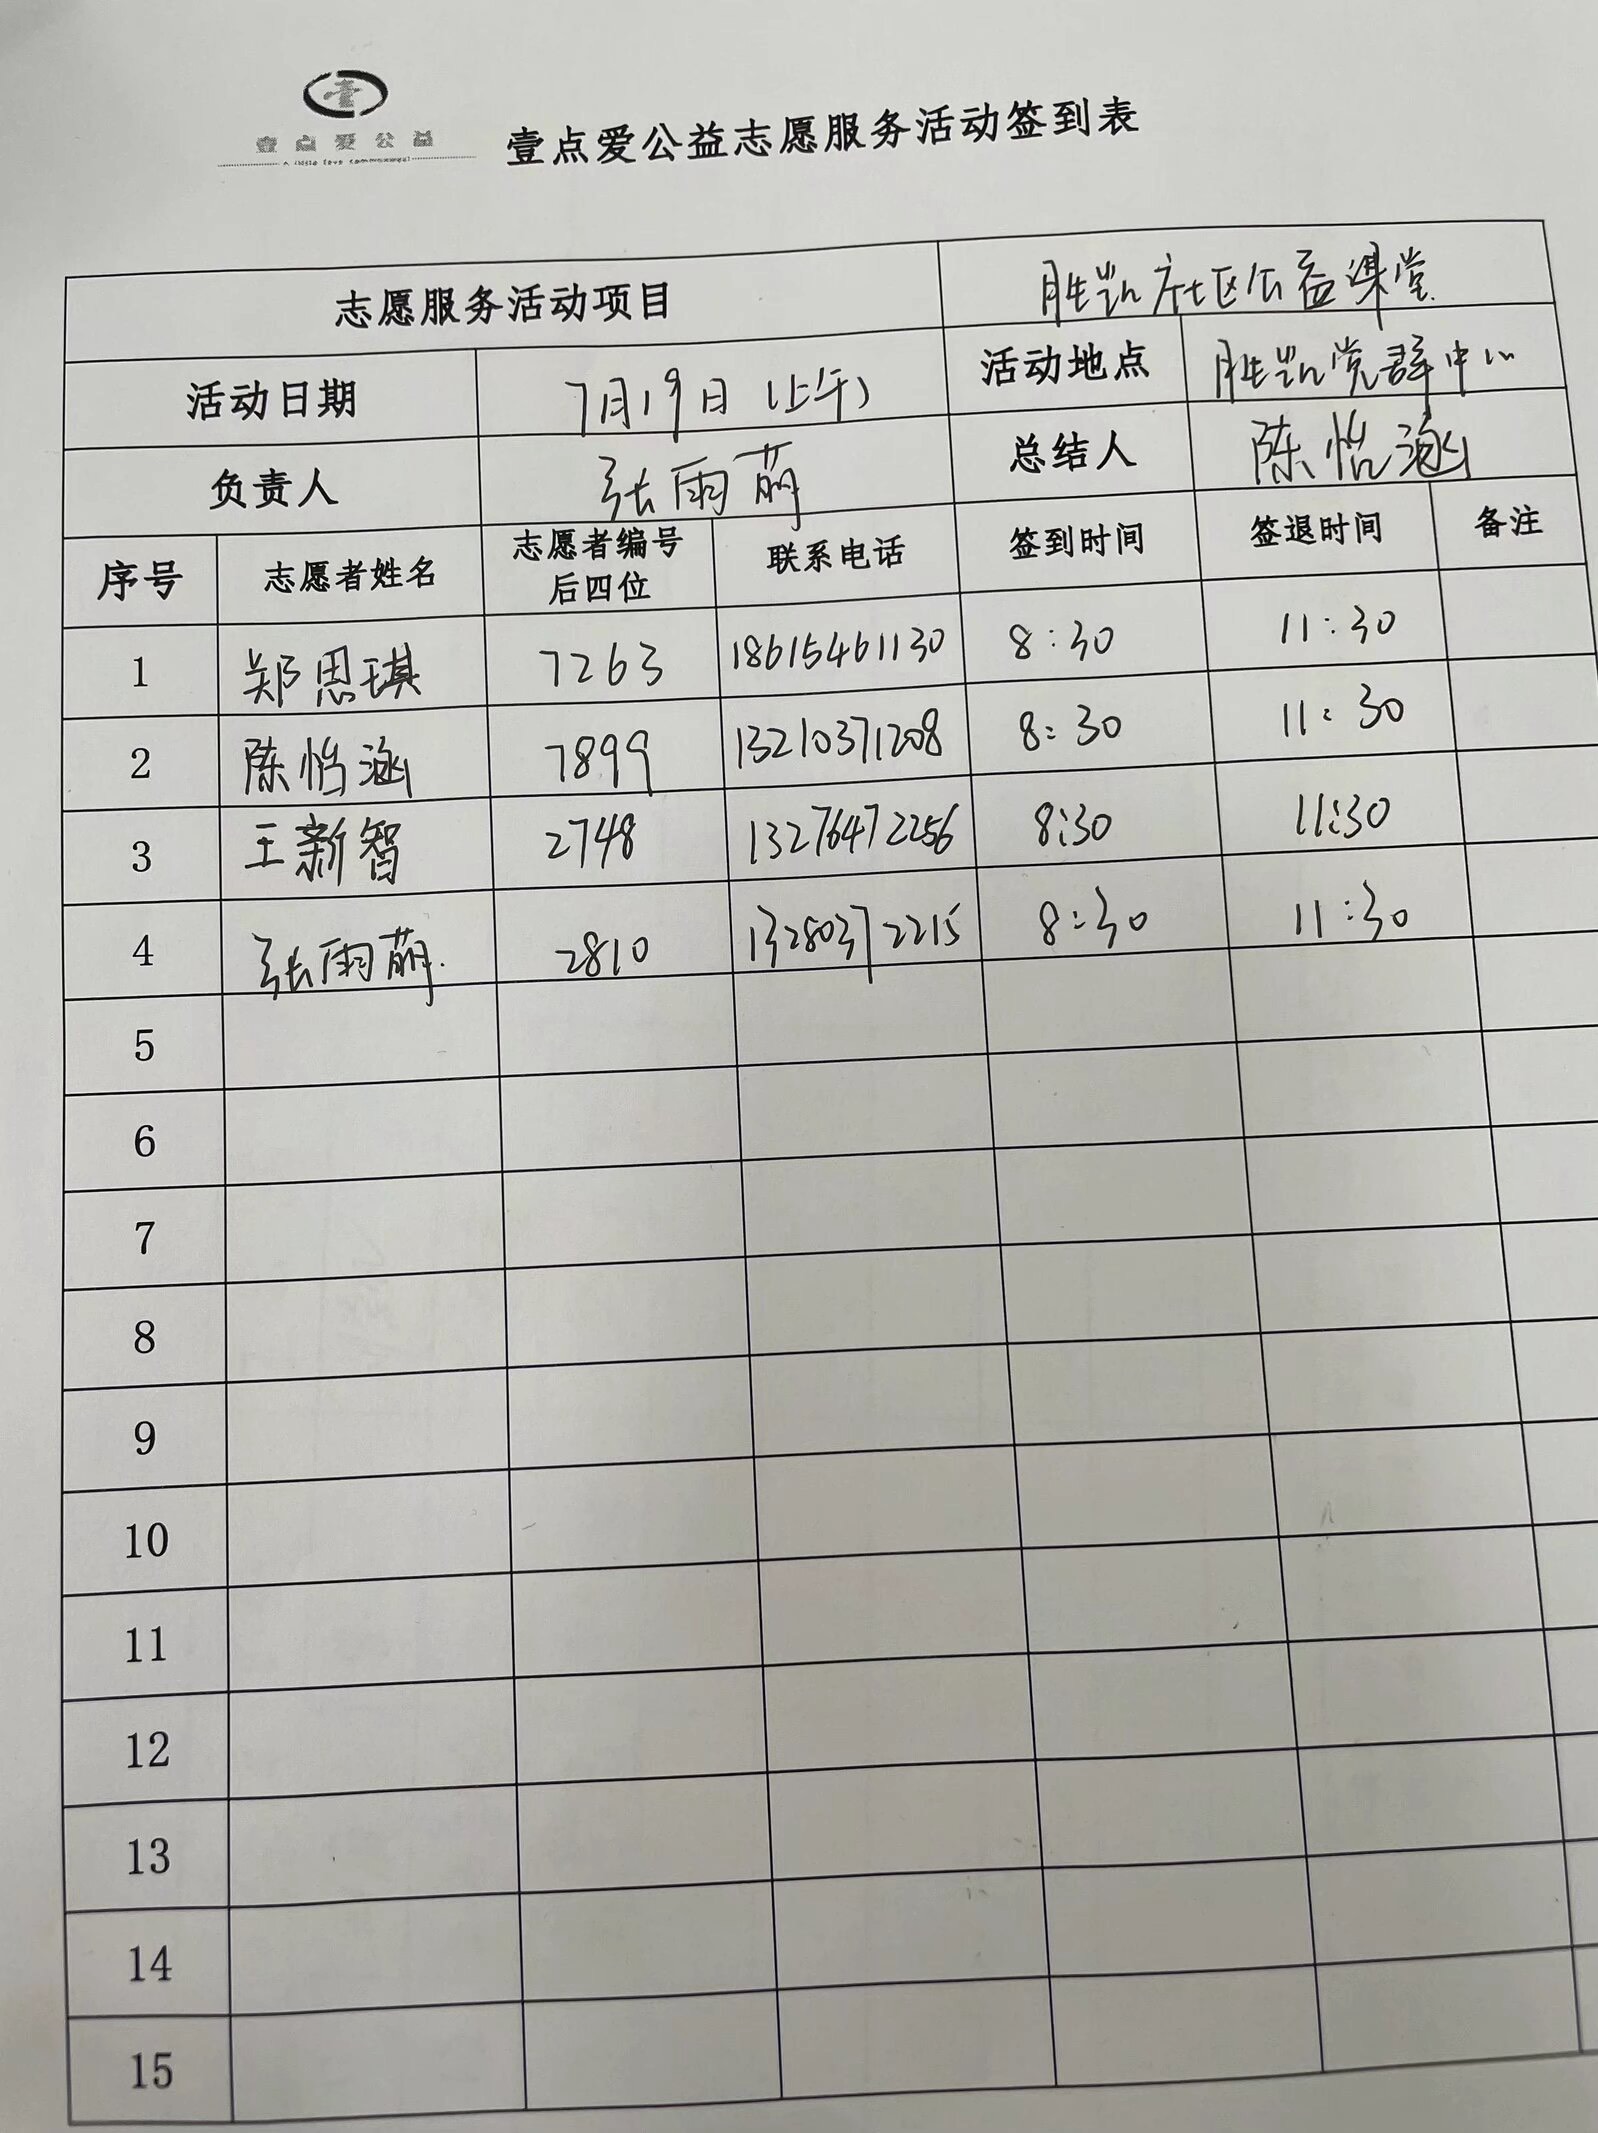 壹点爱公益
壹点爱公益志愿服务活动签到表
志愿服务活动项目 胜凯社区公益课堂
活动日期 7月19日（上午） 活动地点 胜凯党群中心
负责人 张雨萌 总结人 陈怡涵
序号 志愿者姓名 志愿者编号后四位 联系电话 签到时间 签退时间 备注
1 郑思琪 7263 18615461130 8:30 11:30
2 陈怡涵 7899 13210371208 8:30 11:30
3 王新智 2748 13276472256 8:30 11:30
4 张雨萌 2810 13280372215 8:30 11:30
5
6
7
8
9
10
11
12
13
14
15